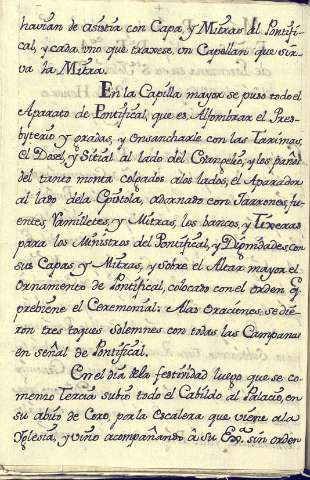 havian de asistir con Capa, y Mitras al Pontifi-
cal, y cada uno que traxese, un Capellan que sir-
va la Mitra.
En la Capilla mayor se puso todo el
Aparato de Pontifical, que es, Alfombrar el Pres-
byterio y gradas, y ensancharle con las Tarimas,
el Dosel, y Sitial al lado del Evangelio, y los paños
del tanto monta colgados a los lados, el Aparador
al lado dela Epistola, adornado con Jarrones, fu-
entes, Ramilletes, y Mitras, los bancos, y Tixeras
para los Ministros del Pontifical, y Dignidades con
sus Capas, y Mitras, y sobre el Altar mayor el
Ornamento de Pontifical, colocado con el orden q.
prebiene el Ceremonial: Alas oraciones se die-
ron tres toques Solemnes con todas las Campanas
en señal de Pontifical.
En el dia dela festividad luego que se co-
menzo Tercia subio todo el Cabildo al Palacio, en
su abito de Coro, por la Escalera que viene ala
Iglesia, y vino acompañando à Su Exª. sin orden